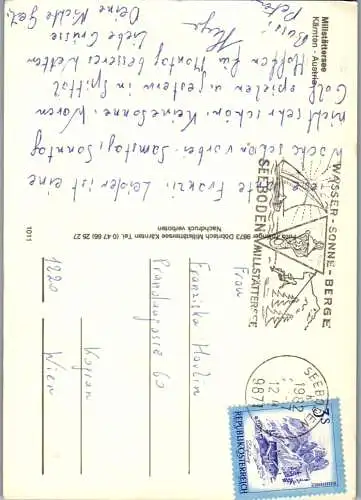 Millstättersee
Kärnten - Austria
Liebe Tante Franzi. Leider ist eine
Woche schon vorbei. Samstag, Sonntag
nicht sehr schön. Keine Sonne. Waren
Golf spielen u. gestern in Spittal
Hoffen für Montag besseres Wetter
Liebe Grüsse
Deine Nichte
9873 Döbriach Millstättersee Kärnten Tel. (0 42 46)
Nachdruck verboten
1011
WASSER - SONNE - BERGE
SEEBODEN / MILLSTÄTTERSEE
SEEBODEN
1982
12
9871
3 S
REPUBLIK ÖSTERREICH
Frau
Franziska Havlin
60
Kagran
1220 Wien